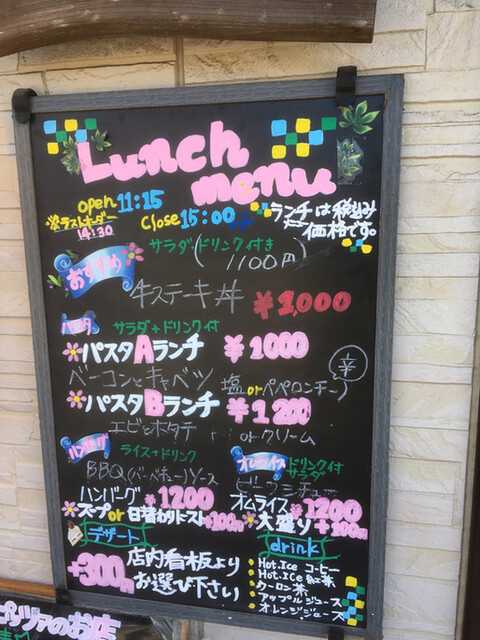 Lunch
menu
open 11:15
※ラストオーダー
14:30
Close 15:00
ランチは税込み
価格です。
サラダ・ドリンク付き
(1100円)
おすすめ
牛ステーキ丼 ¥1,000
パスタ サラダ+ドリンク付
パスタAランチ ¥1000
ベーコンとキャベツ 塩orペペロンチーノ
辛
パスタBランチ ¥1200
エビとホタテ orクリーム
ハンバーグ ライス+ドリンク
BBQ(バーベキュー)ソース
ハンバーグ ¥1200
スープor日替わりトースト+100円
オムライス ドリンク付
サラダ
ビーフシチュー
オムライス ¥1200
大盛り+100円
デザート
+300円 店内看板より
お選び下さい
drink
Hot.Ice コーヒー
Hot.Ice 紅茶
ウーロン茶
アップルジュース
オレンジジュース
のお店